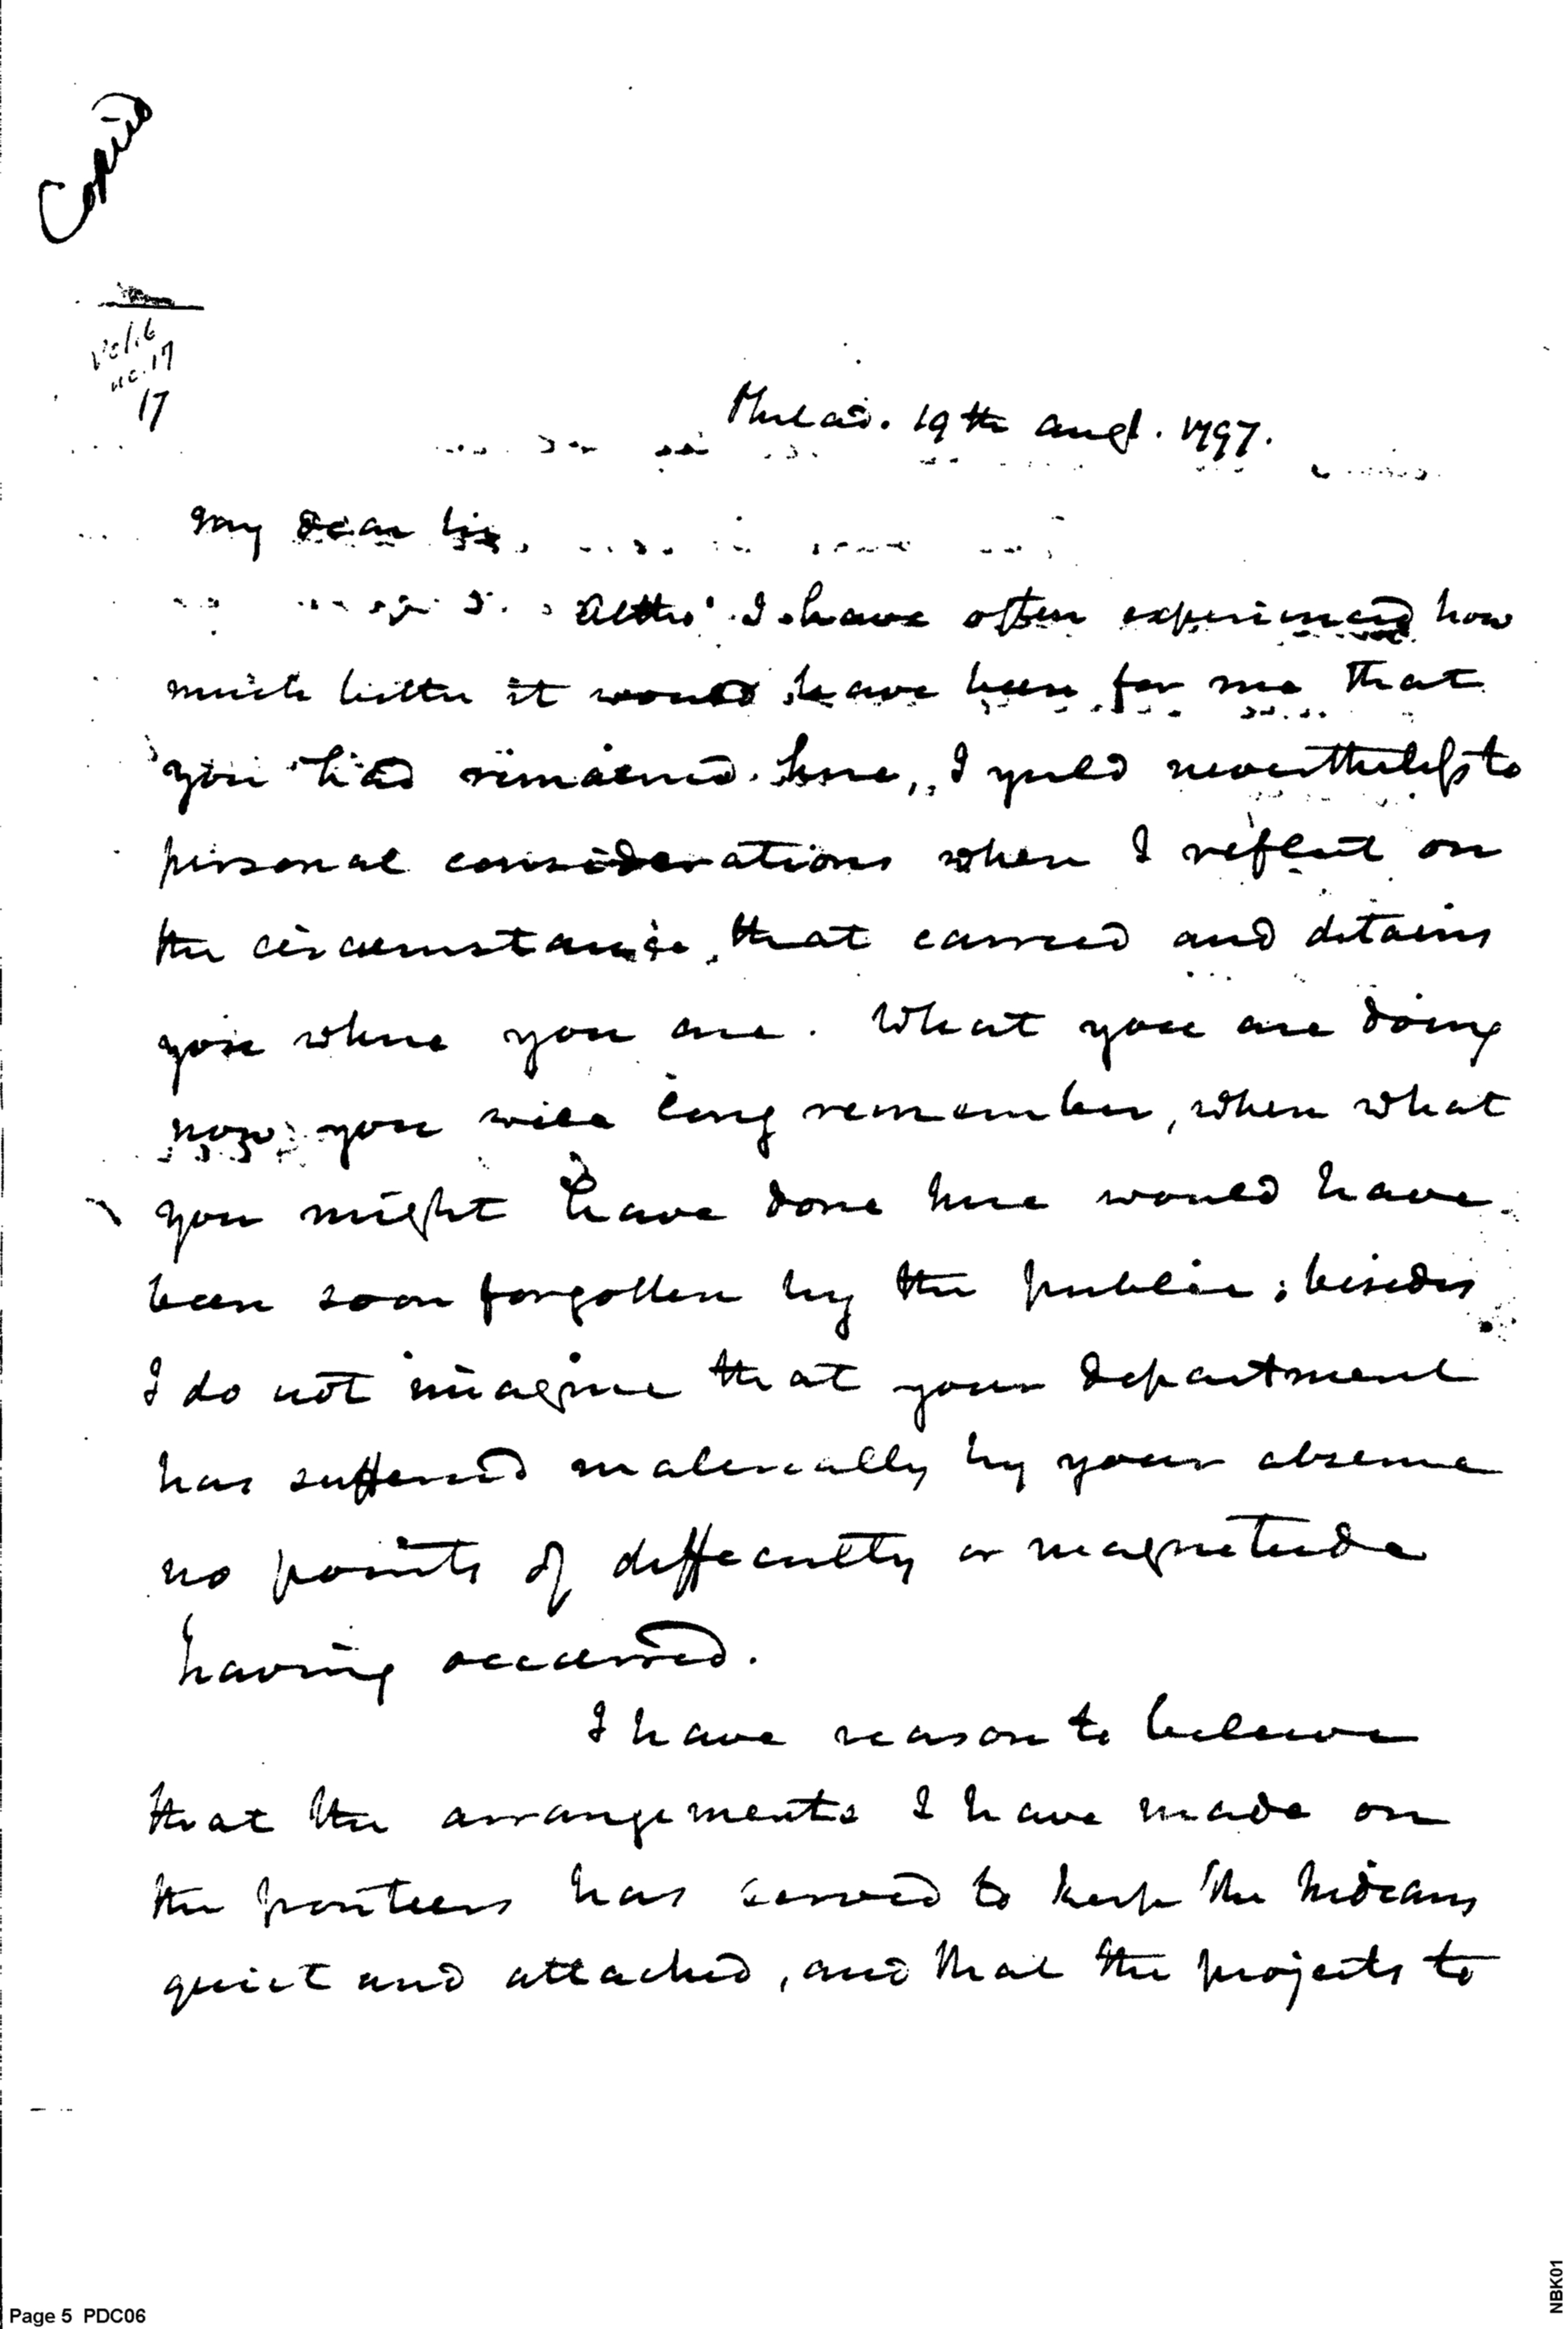 Copied
Vol. 6
no. 17
17
Philad. 19th augt. 1797.
My dear Sir,
Altho' I have often experienced how
much better it would have been for me that
you had remained here, I yield nevertheless to
personal considerations when I reflect on
the circumstance that carried and detains
you where you are. What you are doing
now you will long remember, when what
you might have done here would have
been soon forgotten by the public; besides
I do not imagine that your department
has suffered materially by your absence
no points of difficulty or magnitude
having occurred.
I have reason to believe
that the arrangements I have made on
the frontiers has served to keep the Indians
quiet and attached, and that the projects to
Page 5 PDC06
NBK01